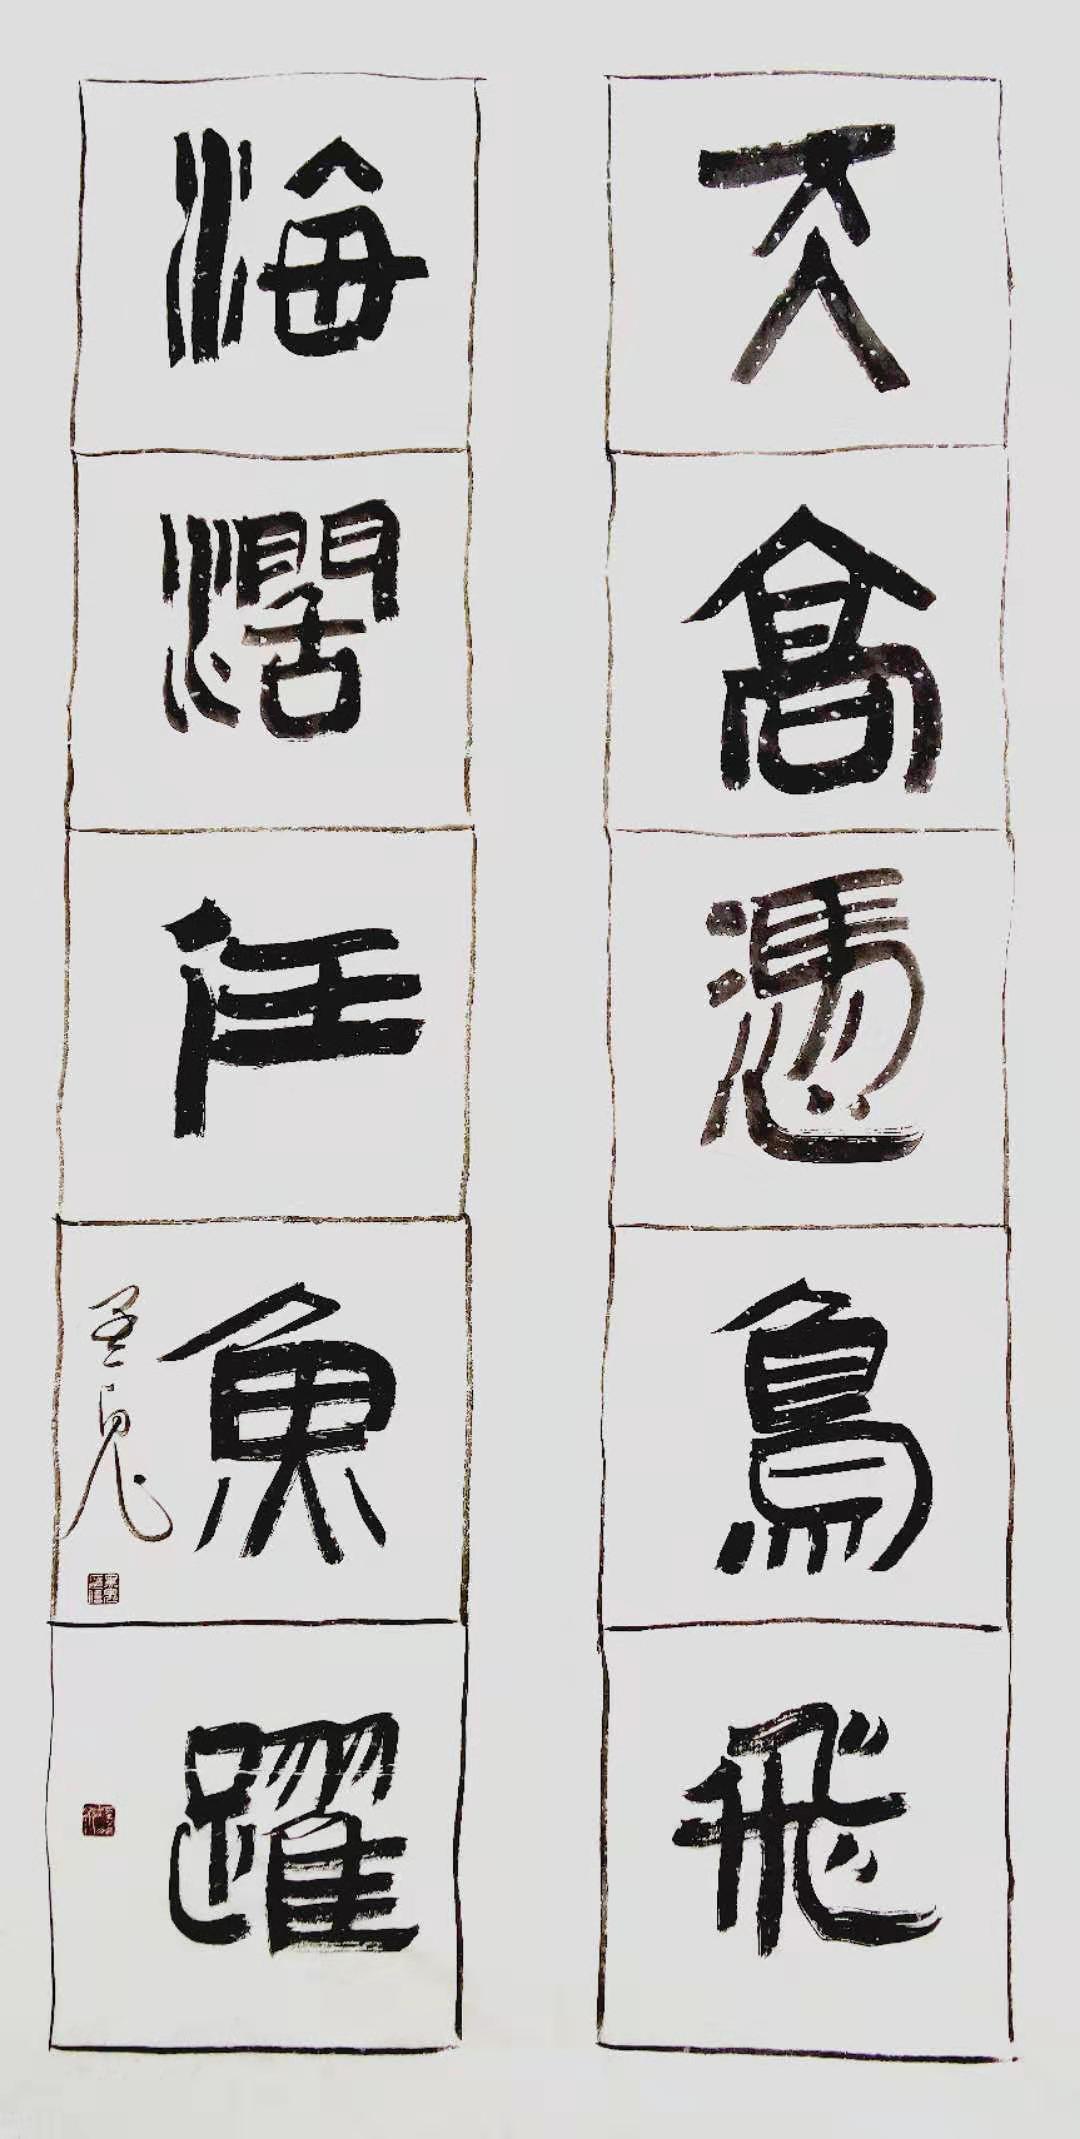 天高憑鳥飛
海濶任魚躍